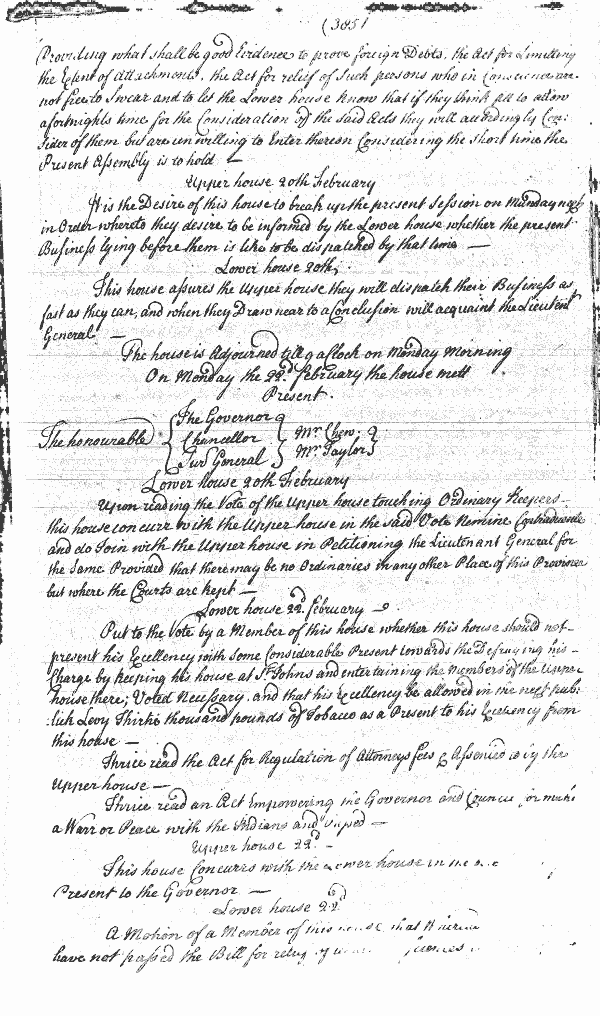 (385)
Provideing what shall be good Evidence to prove foreign Debts, the Act for Limitting
the Extent of Attachments, the Act for relief of Such persons who in Conscience are
not free to Swear and to let the Lower house know that if they think fitt to allow
a fortnights time for the Consideration of the said Acts they will accordingly Con:
sider of them but are unwilling to Enter thereon Considering the short time the
Present Assembly is to hold —
Upper house 20th February
It is the Desire of this house to break up the present Session on Munday next
in Order whereto they desire to be informed by the Lower house whether the present
Business lying before them is like to be dispatched by that time —
Lower house 20th
This house assures the Upper house they will dispatch their Business as
fast as they can, and when they Draw near to a Conclusion will acquaint the Lieutent
General —
The house is Adjourned till 9 a Clock on Monday Morning
On Monday the 22d. of February the house mett
Present.
The honourable { The Governor
Chancellor } Mr. Chew.
Sur General } Mr. Taylor }
Lower house 20th February
Upon reading the Vote of the Upper house touching Ordinary Keepers
this house concurr with the Upper house in the said Vote Nemine Contradicente
and do Join with the Upper house in Petitioning the Lieutenant General for
the Same Provided that there may be no Ordinaries in any other Place of this Province
but where the Courts are kept —
Lower house 22d. February
Put to the Vote by a Member of this house whether this house should not
present his Excellency with some Considerable Present towards the Defraying his
Charge by keeping his house at St. Johns and entertaining the Members of the Upper
house there; Voted Necessary. and that his Excellency be allowed in the next pub:
lick Levy Thirty thousand pounds of Tobacco as a Present to his Excellency from
this house —
Thrice read the Act for Regulation of Attorneys fees & Assented to by the
Upper house —
Thrice read an Act Empowering the Governor and Council for
a Warr or Peace with the Indians and
Upper house 22d. —
This house Concurrs with the Lower house in
Present to the Governor —
Lower house 22d
A Motion of a Member of this house that
have not passed the Bill for